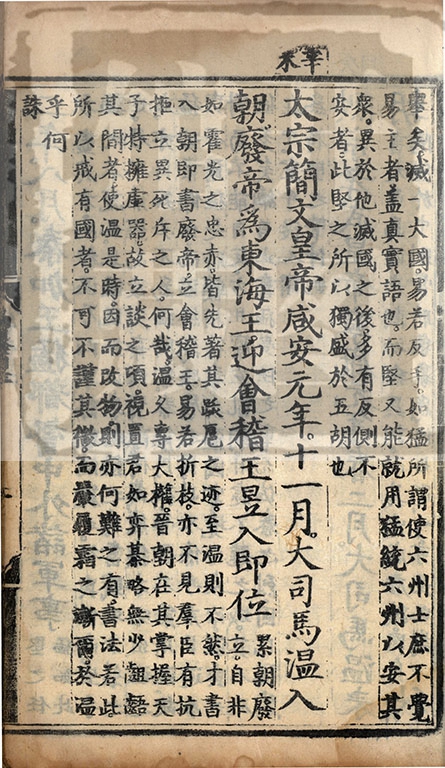 辛未
舉矣。滅一大國。易若反手。如猛所謂使六州士庶不覺
易主者蓋真實語也。而堅又能就用猛統六州以安其
衆。異於他滅國之後。多有反側不
安者。此堅之所以獨盛於五胡也
太宗簡文皇帝咸安元年。十一月。大司馬温入
朝廢帝爲東海王迎會稽王昱入即位
累朝廢
立自非
如霍光之忠亦皆先著其跋扈之迹。至温則不然。才書
入朝即書廢帝。立會稽王。易若折枝。亦不見羣臣有抗
拒立異死斥之人。何哉温久專大權。晉朝在其掌握天
子特擁虛器。故立談之頃。視置君如弈棊略無少齟齬
其間者。使温是時。因而改物則亦何難之有書法若此
所以戒有國者。不可不謹其微。而嚴履霜之漸爾。於温
乎何
誅